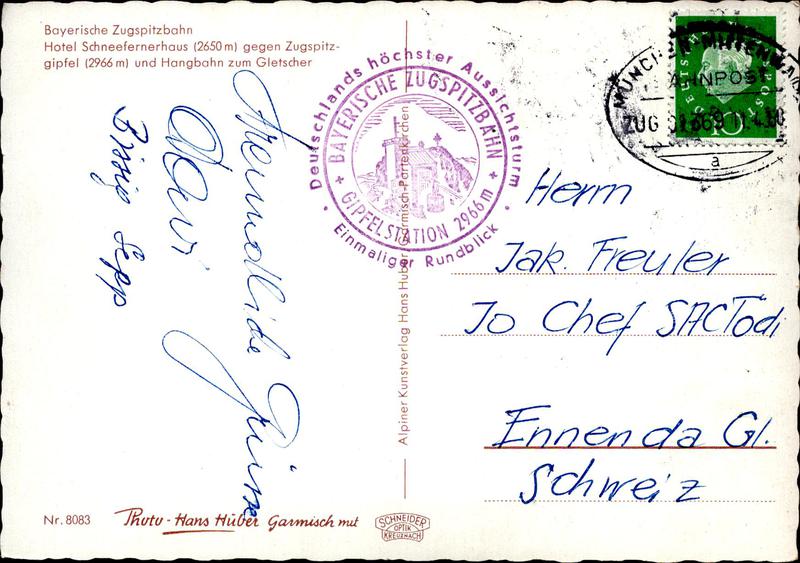 Bayerische Zugspitzbahn
Hotel Schneefernerhaus (2650 m) gegen Zugspitz-
gipfel (2966 m) und Hangbahn zum Gletscher
Freundliche Grüsse
Sepp
Deutschlands höchster Aussichtsturm
BAYERISCHE ZUGSPITZBAHN
GIPFELSTATION 2966 m
Einmaliger Rundblick
Alpiner Kunstverlag Hans Huber Garmisch-Partenkirchen
BAHNPOST
ZUG
a
10
Herrn
Jak. Freuler
Jo Chef SAC Tödi
Ennenda Gl.
Schweiz
Nr. 8083
Photo - Hans Huber Garmisch mit
SCHNEIDER
OPTIK
KREUZNACH